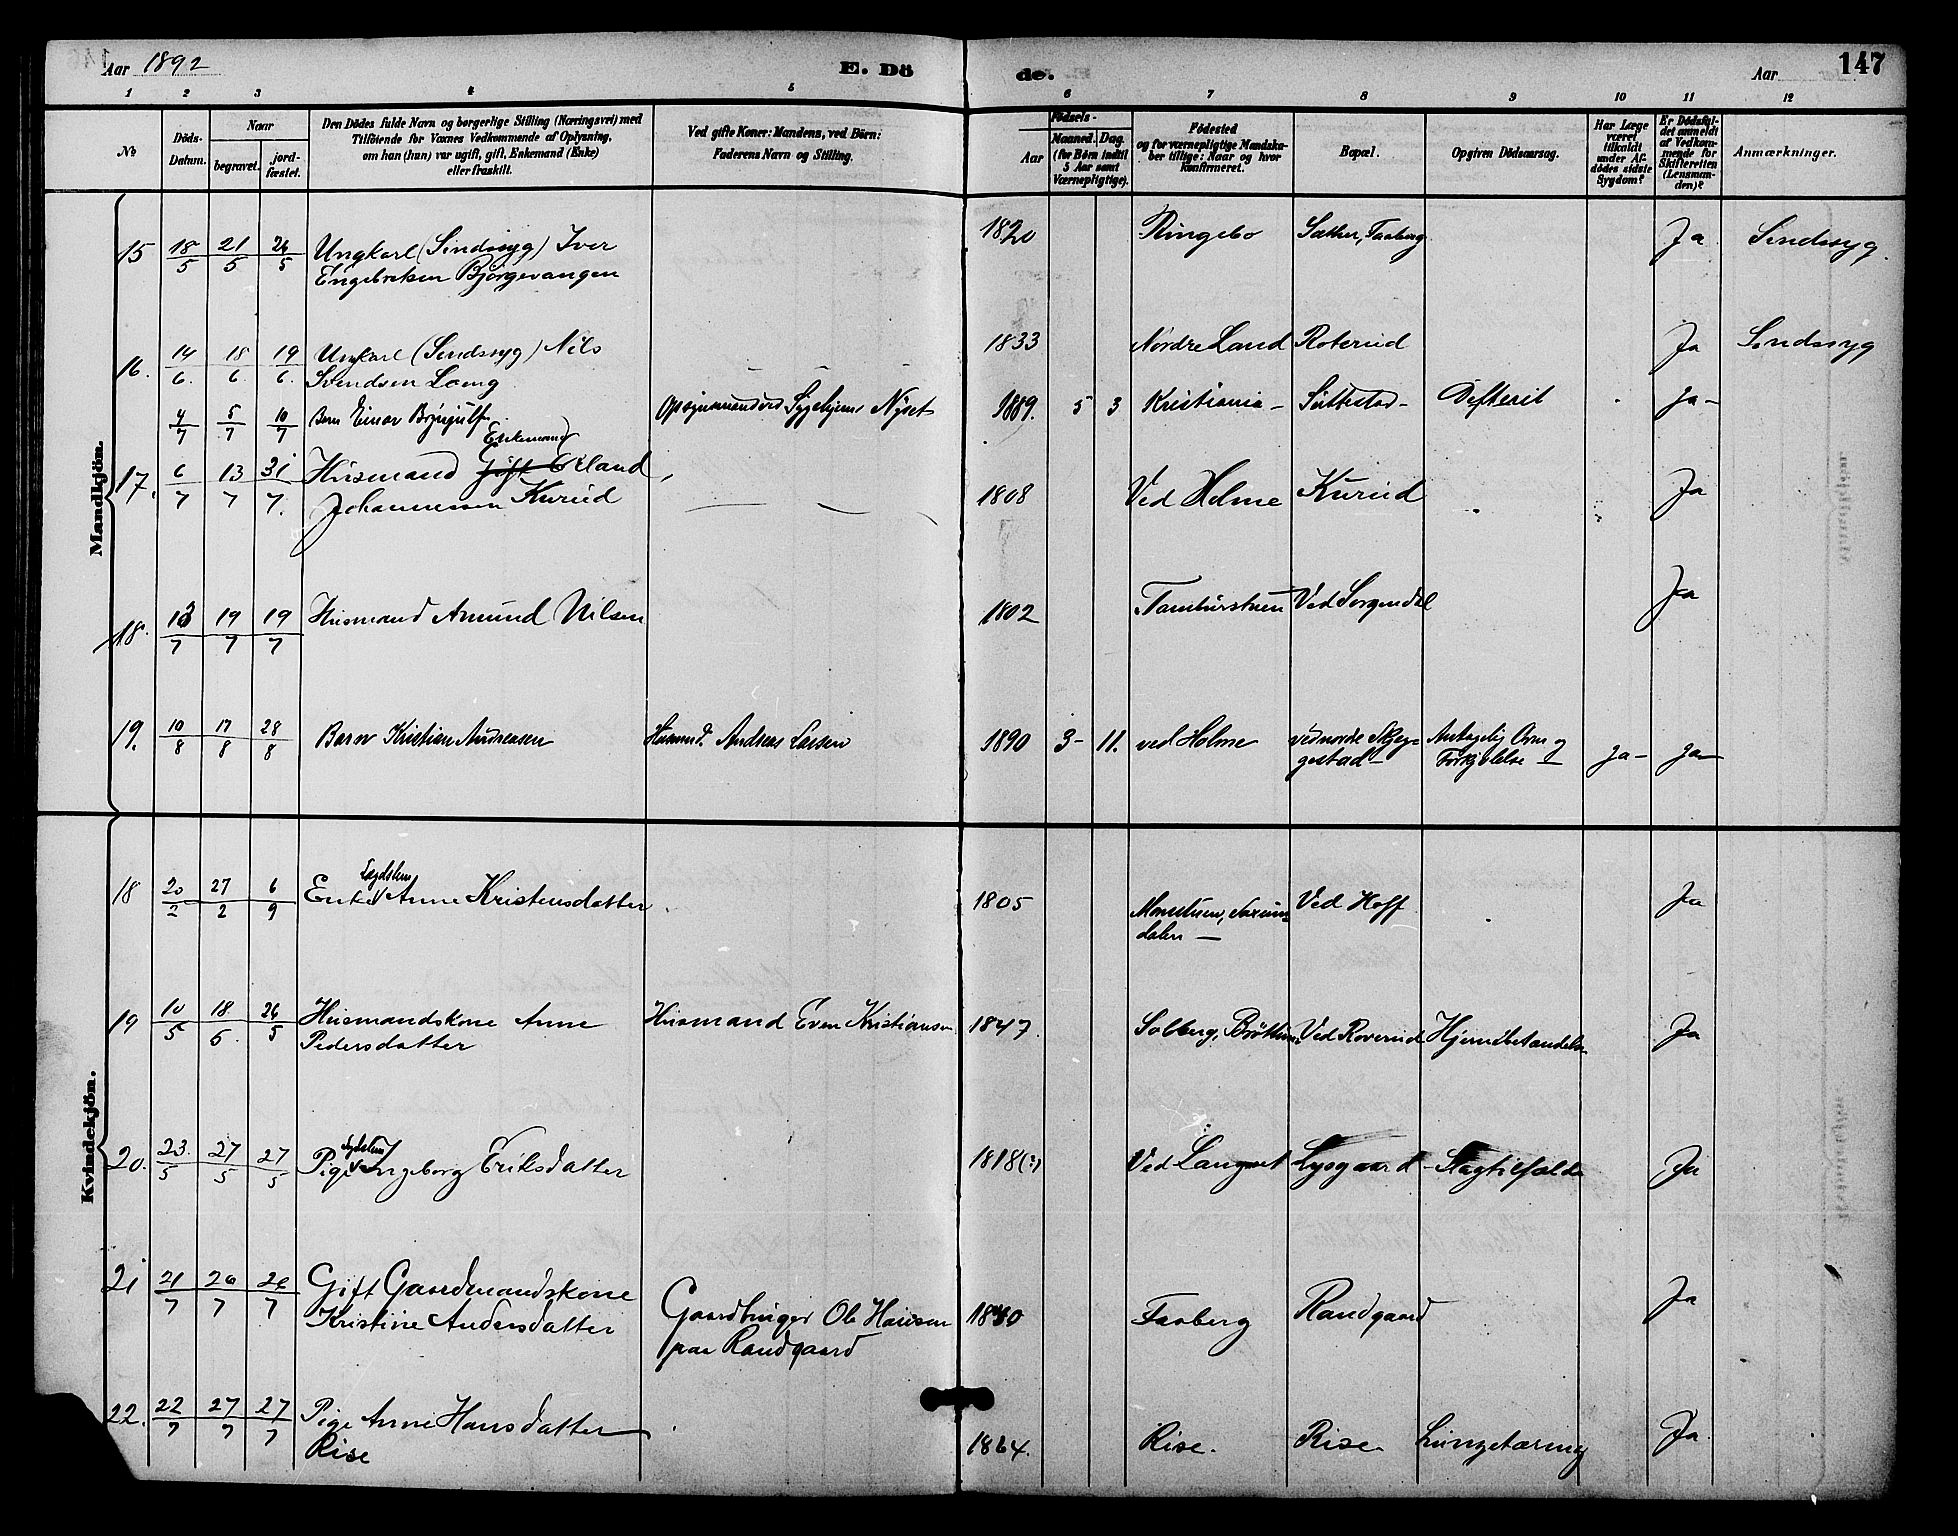 Aar 1892
E. Dö
de.
Aar
147
1 2 3 4 5 6 7 8 9 10 11 12
№
Döds-
Datum.
Naar
begravet.
jord-
fæstet.
Den Dödes fulde Navn og borgerlige Stilling (Næringsvei) med
Tilföiende for Voxnes Vedkommende af Oplysning,
om han (hun) var ugift, gift, Enkemand (Enke)
eller fraskilt.
Ved gifte Koner: Mandens, ved Börn:
Faderens Navn og Stilling.
Födsels-
Aar
Maaned. Dag.
(for Börn indtil
5 Aar samt
Værnepligtige).
Födested
og for værnepligtige Mandska-
ber tillige: Naar og hvor
konfirmeret.
Bopæl.
Opgiven Dödsaarsag.
Har Læge
været
tilkaldt
under Af-
dödes sidste
Sygdom?
Er Dödsfal-
det anmeldt
af Vedkom-
mende for
Skifteretten
(Lensman-
den)?
Anmærkninger.
Mandkjön.
15 18/5 21/5 26/5 Ungkarl (Sindssyg) Iver
Engebretsen Bjørgevangen
1820 Ringebo Sæther, Faaberg Ja Sindssyg.
16. 14/6. 18/6. 19/6. Ungkarl (Sindssyg) Nils
Svendsen Loeng
1833 Nordre Land Roterud Ja Sindssyg
4/7 5/7 10/7 Barn Einar Brynjulf
Opsynsmand ved Sygehjem Nyset
1889. 5 3 Kristiania - Suttestad - Difterit Ja -
17. 6/7 13/7 31/7. Husmand Gift Erland
Enkemand
Johannessen Kurud
1808 Ved Holme Kurud Ja
18. 13/7 19/7 19/7 Husmand Amund Nilsen
1802 Tamburstuen Ved Sorgendal Ja
19. 10/8 17/8 28/8 Barn Kristian Andreasen Husmd. Andreas Larsen
1890 3 - 11. ved Holme ved nordre Skjeg-
gestad - Antagelig Orm og
Forkjølelse Ja - Ja -
Kvindekjön.
18 20/2 27/2 6/9 Enke Anne Kristensdatter
Lægdslem
1805 Monstuen, Saxum-
dalen - Ved Hoff Ja
19 10/5 18/5. 26/5 Husmandskone Anne
Pedersdatter
Husmand Even Kristiansen
1847. Solberg, Brøttum Ved Roverud Hjernebetændelse Ja
20. 23./5 27/5 27/5 Pige Ingeborg Eriksdatter
Lægdslem
1818(?) Ved Langset Lysgaard Slagtilfælde Ja
21 21/7 26/7 26/7 Gift Gaardmandskone
Kristine Andersdatter
Gaardbruger Ole Hansen
paa Randgaard
1840 Faaberg Randgaard Ja
22. 22/7 27/7 27/7 Pige Anne Hansdatter
Rise
1864. Rise. Rise Lungetæring Ja